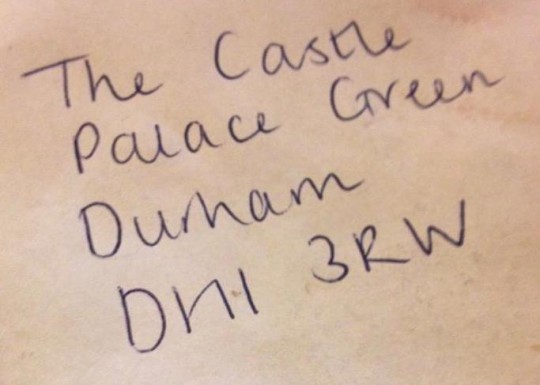 The Castle
Palace Green
Durham
DH1 3RW